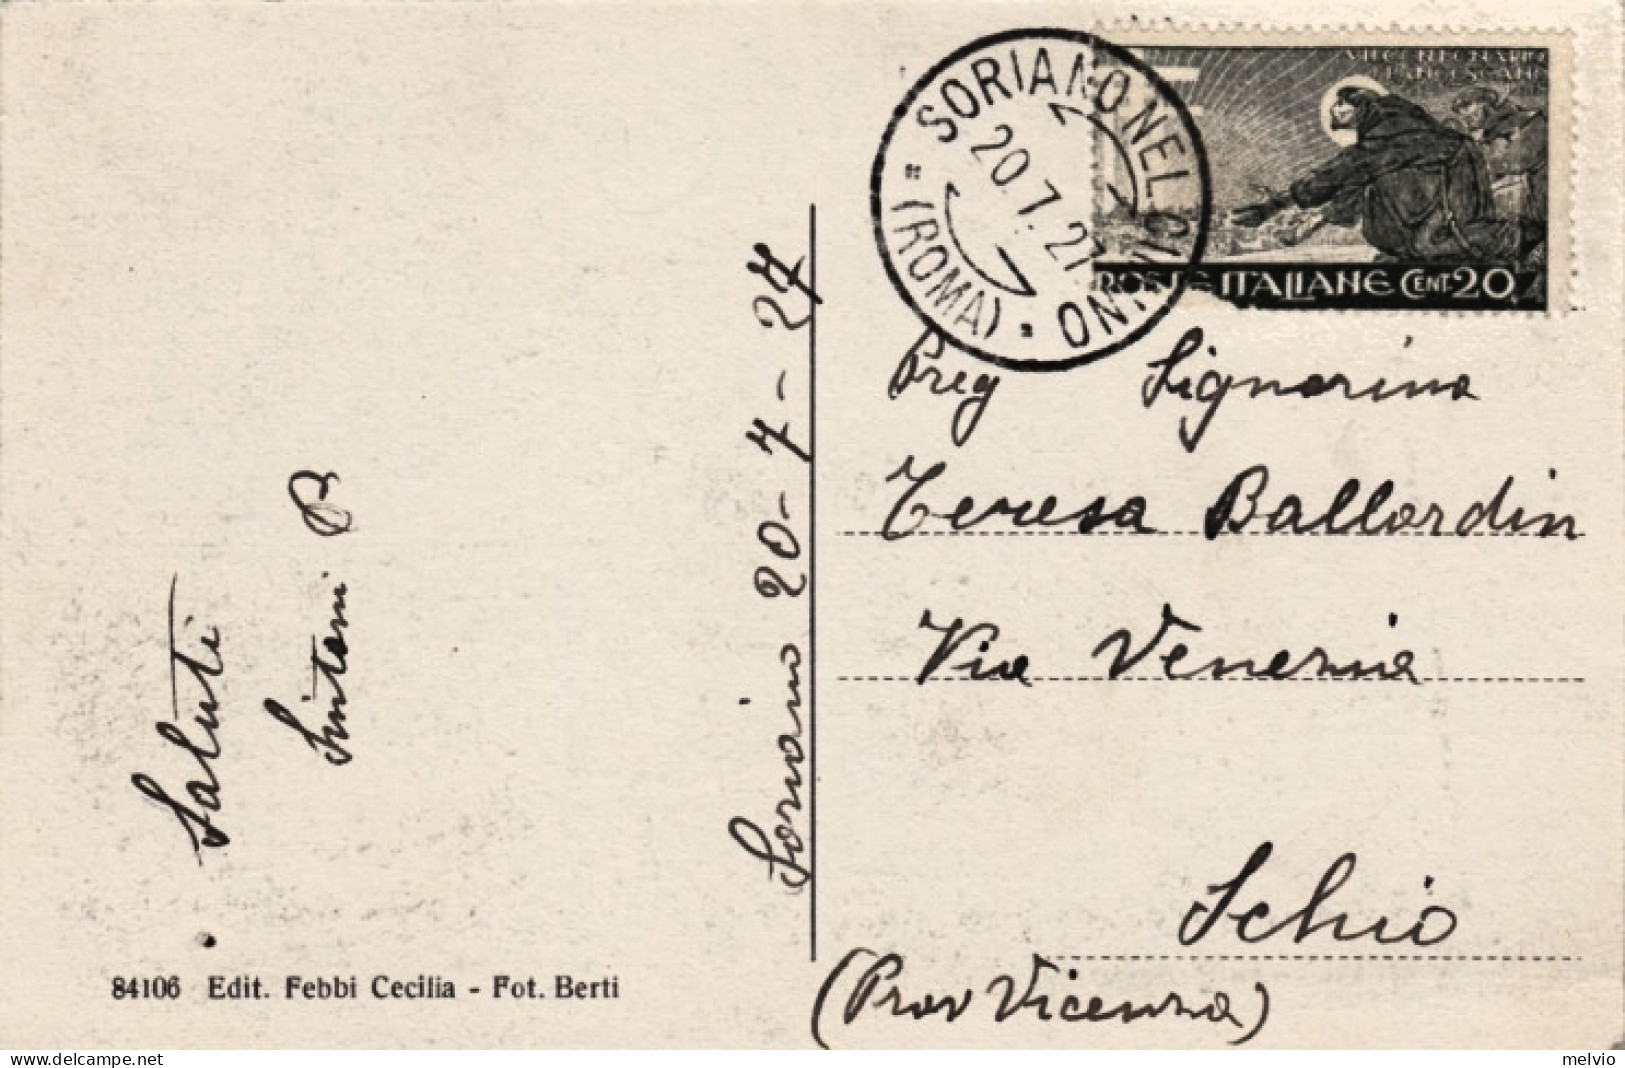 SORIANO NEL CIMINO
20.7.27
(ROMA)
VII CENTENARIO
FRANCESCANO
POSTE ITALIANE CENT. 20
Preg Signorina
Teresa Ballardin
Via Venezia
Schio
(Prov Vicenza)
Soriano 20-7-27
Saluti
Sintoni B
84106 Edit. Febbi Cecilia - Fot. Berti
melvio